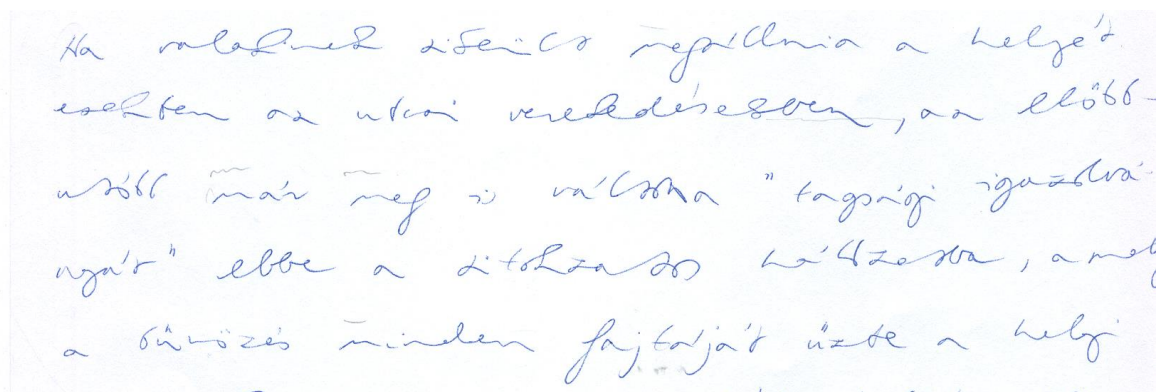 Ha valakinek sikerült megállnia a helyét
ezekben az utcai verekedésekben, az előbb-
utóbb már meg is váltotta "tagsági igazolvá-
nyát" ebbe a titokzatos hálózatba, amely
a bűnözés minden fajtáját űzte a helyi